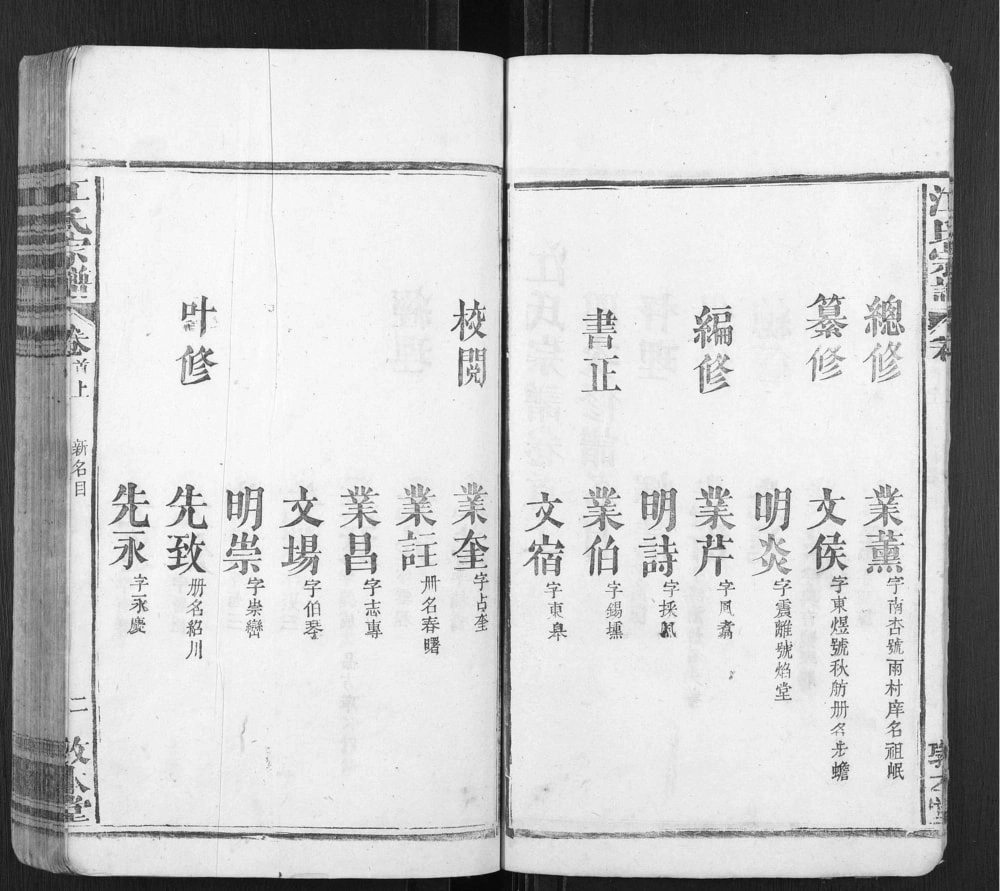 江氏宗譜
總修 業薰 字南杏號雨村庠名祖岷
纂修 文侯 字東煜號秋舫册名步蟾
明炎 字震離號焰堂
編修 業芹 字風翥
明詩 字採風
書正 業伯 字錫壎
文宿 字東皋
校閲 業奎 字占奎
業註 册名春曙
業昌 字志專
文場 字伯琴
明崇 字崇巒
叶修 先致 册名紹川
先永 字永慶
江氏宗譜 卷首上 新名目 二 敦本堂